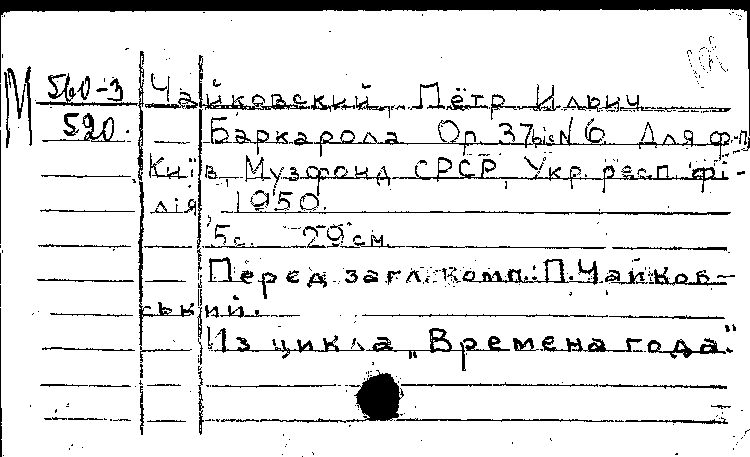 М 560-3 Чайковский, Пётр Ильич
520. Баркарола Op. 37bis N 6 Для ф-п
Київ, Музфонд СРСР, Укр. респ. фі-
лія, 1950.
5с. 29см.
Перед загл. комп.: П. Чайков-
ський.
Из цикла „Времена года."